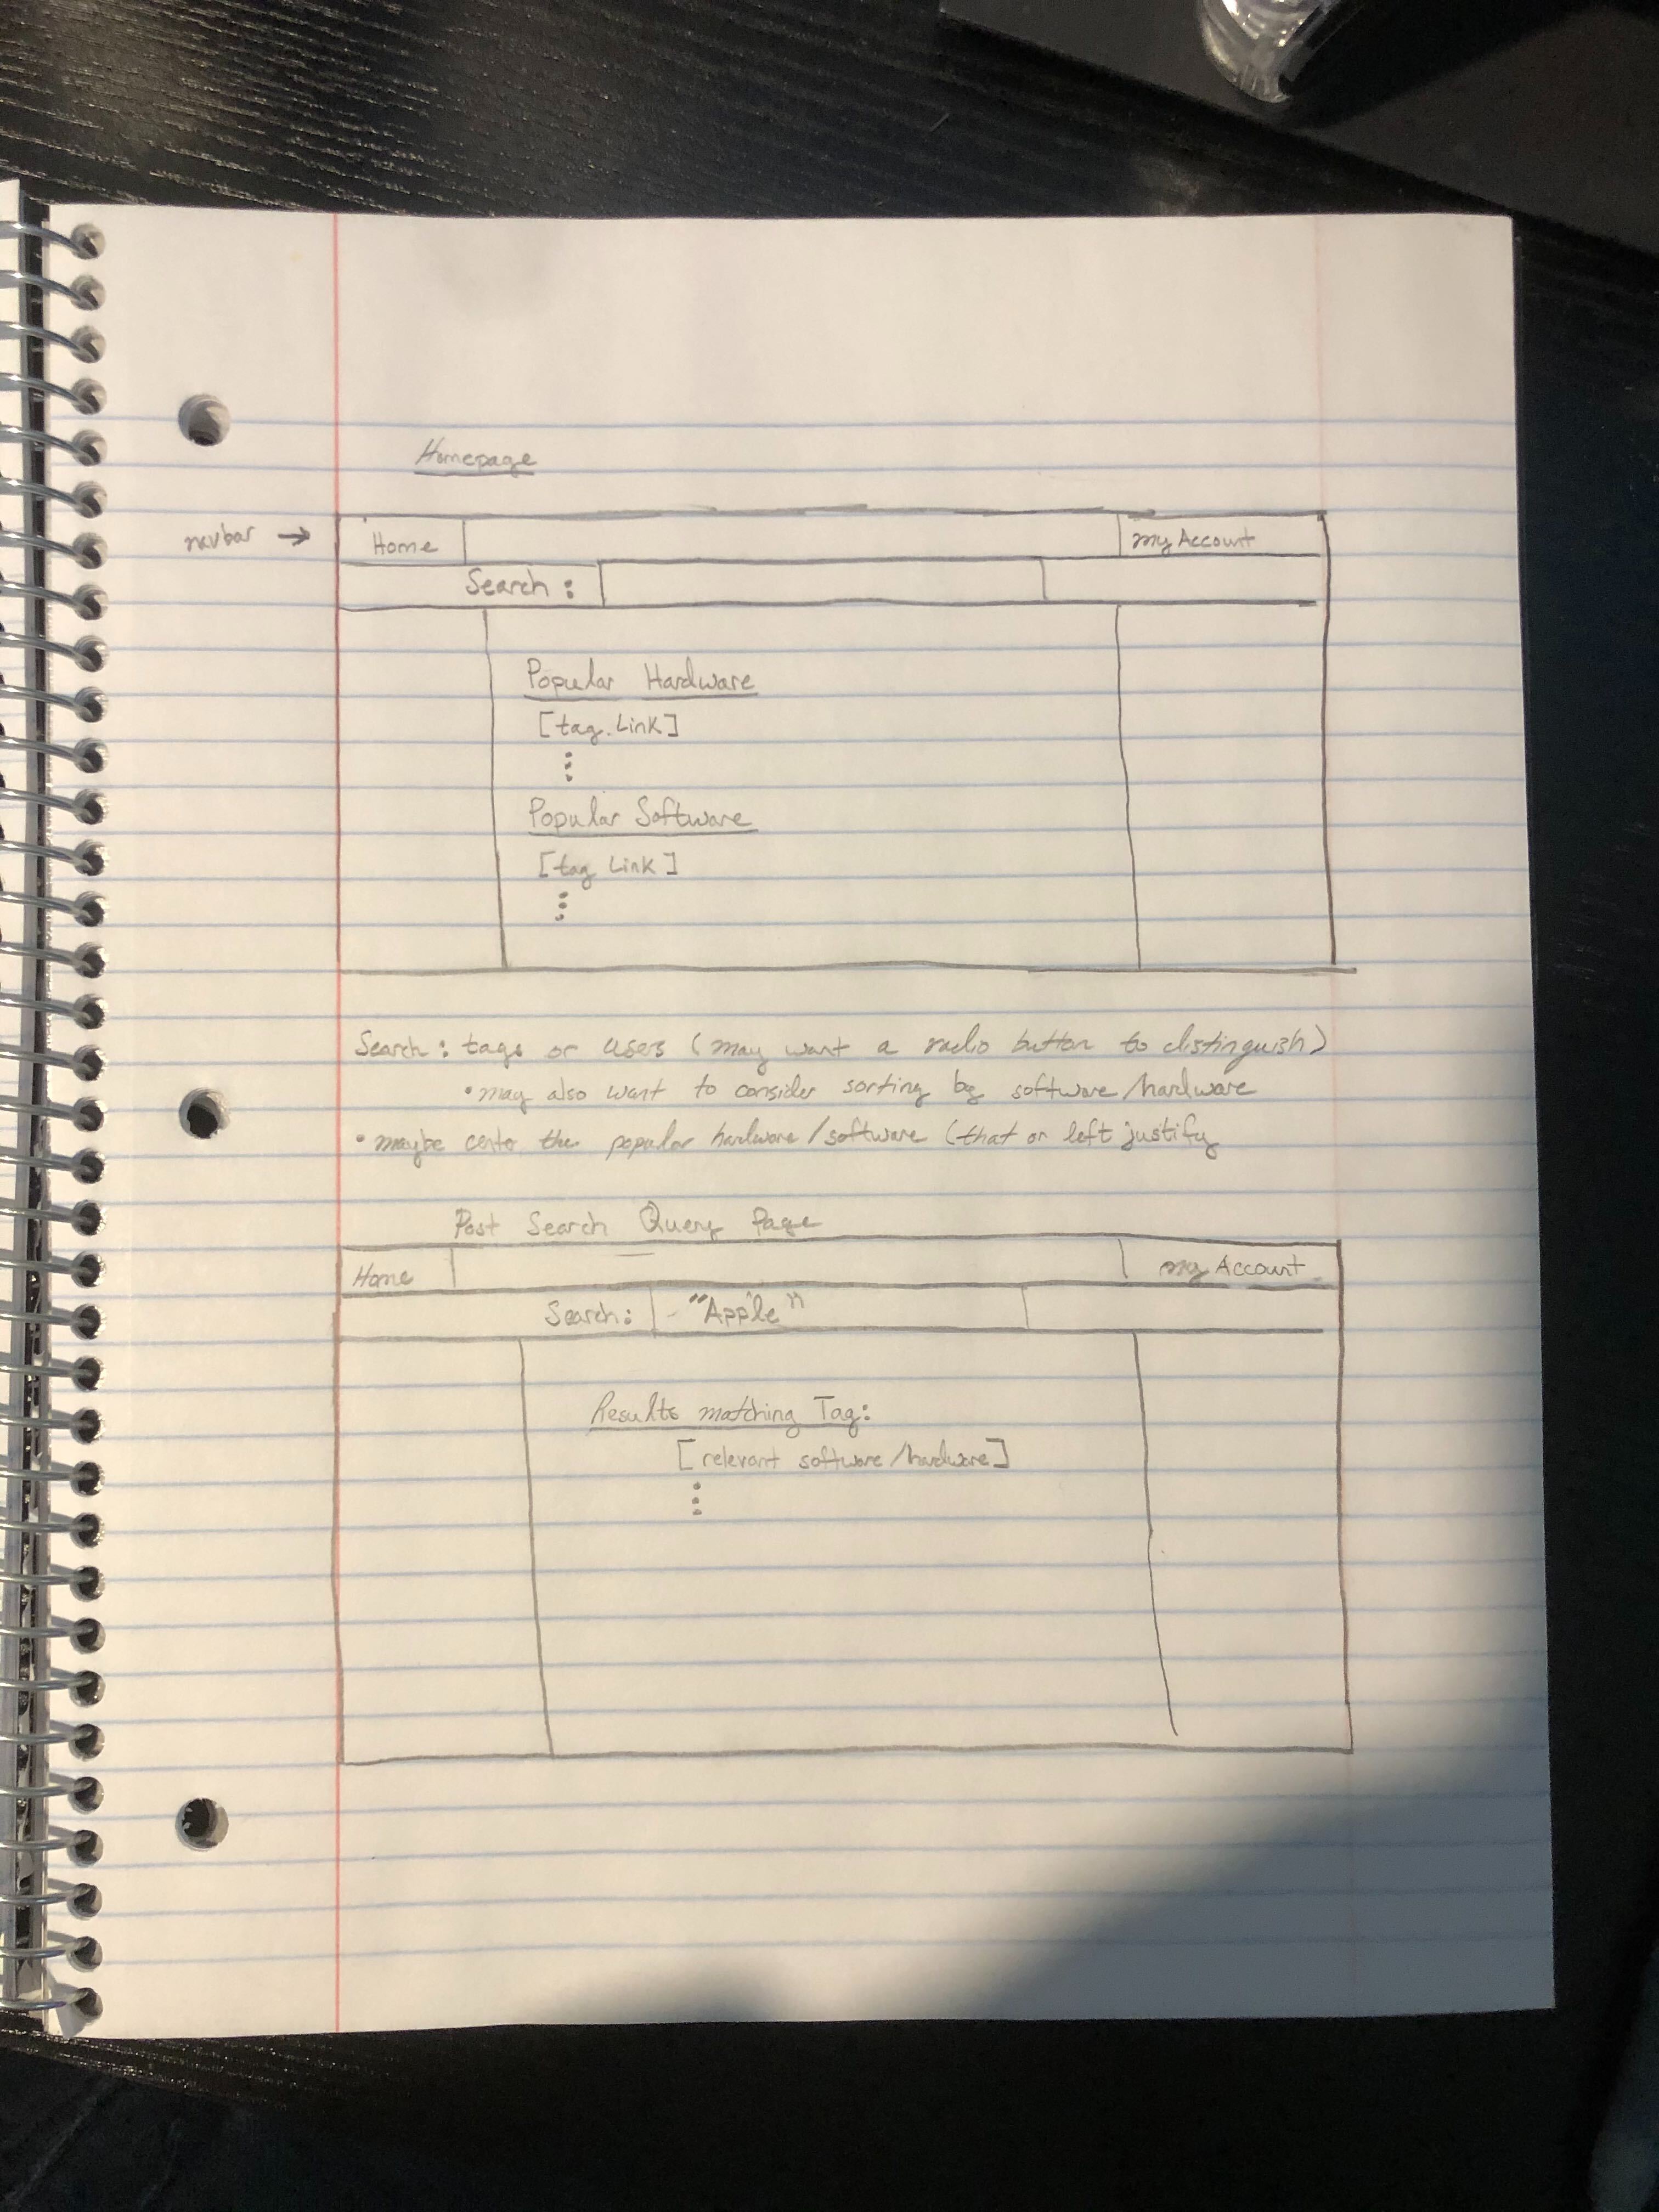 Homepage
navbar →
Home
my Account
Search :
Popular Hardware
[tag Link]
⋮
Popular Software
[tag Link]
⋮
Search : tags or users (may want a radio button to distinguish)
• may also want to consider sorting by software/hardware
• maybe the popular hardware/software (that or left justify
Post Search Query Page
Home
my Account
Search: "Apple"
Results matching Tag:
[relevant software/hardware]
⋮